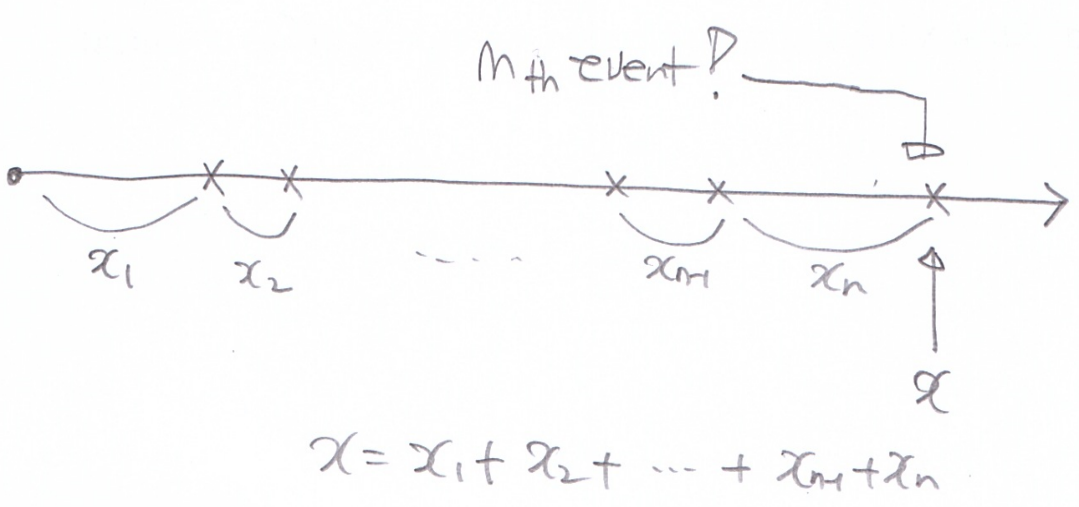 nth event?
x₁ x₂ ..... xₙ₋₁ xₙ
x
x = x₁ + x₂ + ... + xₙ₋₁ + xₙ